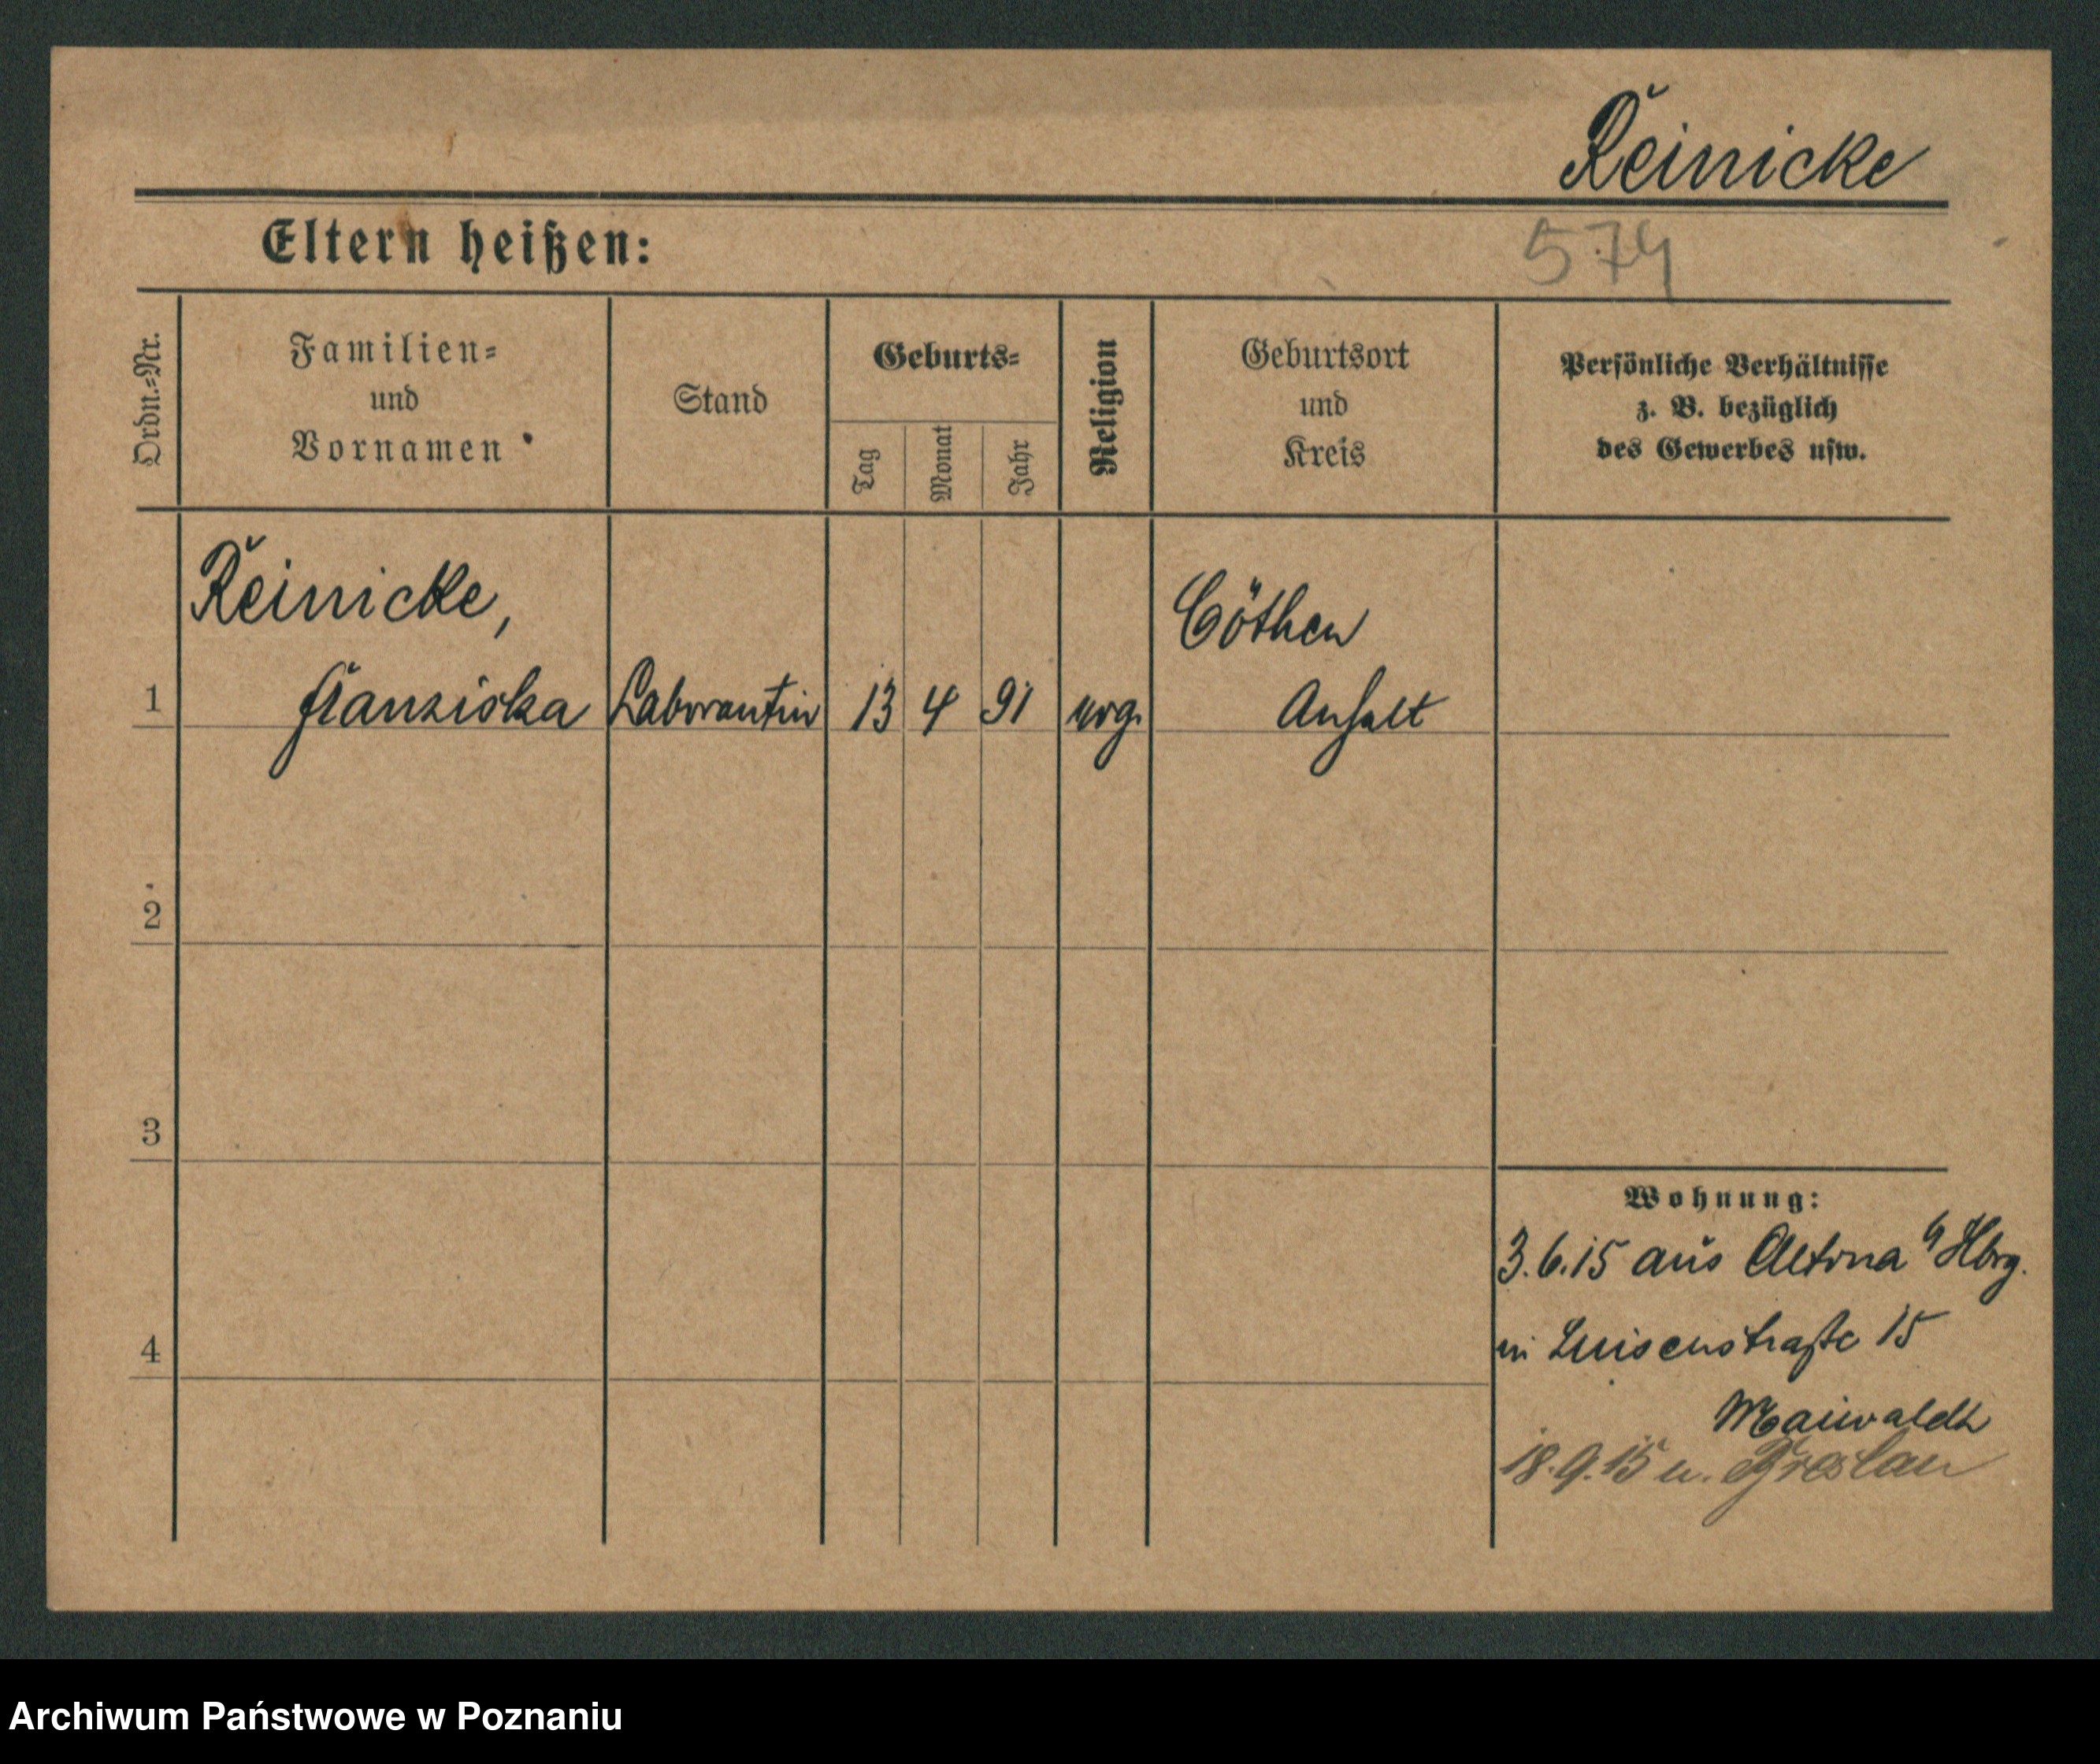 Reinicke
Eltern heißen:
574
Ordn.=Nr.
Familien=
und
Vornamen
Stand
Geburts=
Tag
Monat
Jahr
Religion
Geburtsort
und
Kreis
Persönliche Verhältnisse
z. B. bezüglich
des Gewerbes usw.
Reinicke,
Cöthen
1 Franziska Laborantin 13 4 91 evg. Anhalt
2
3
Wohnung:
3.6.15 aus Altona b/ Hbrg.
in Luisenstraße 15
4
Maiwaldt
18.9.15 n. Breslau
Archiwum Państwowe w Poznaniu